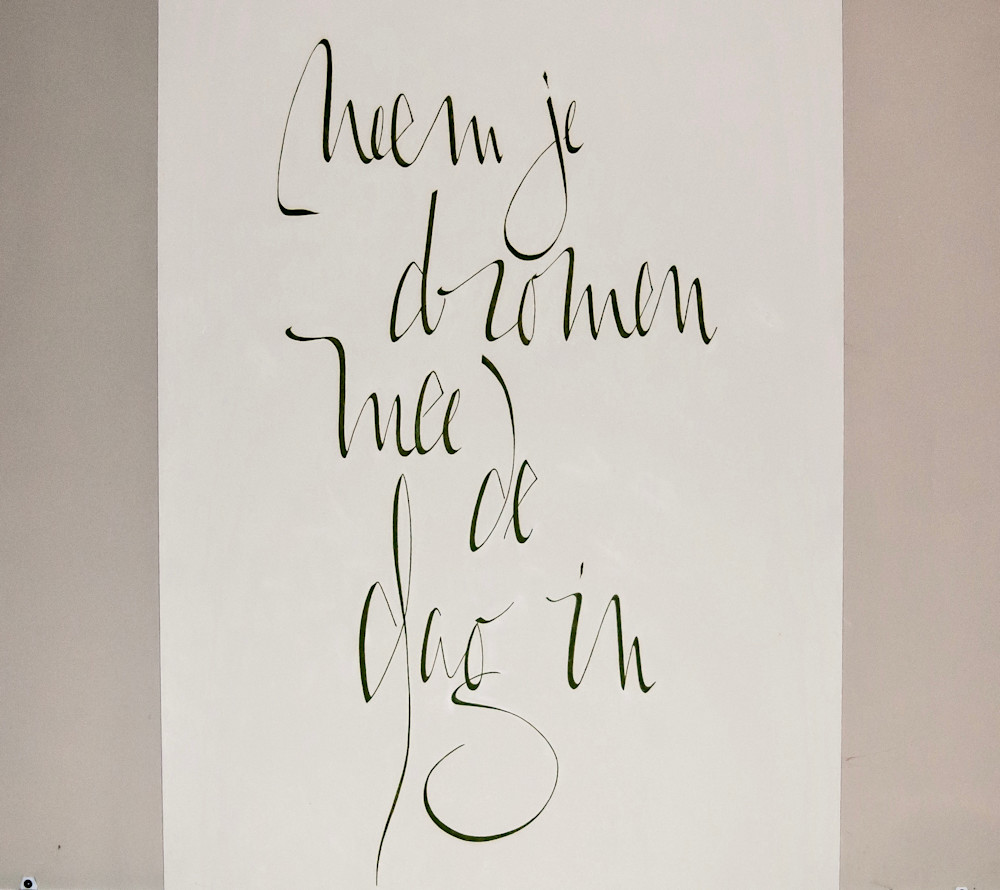 neem je
dromen
mee
de
dag in